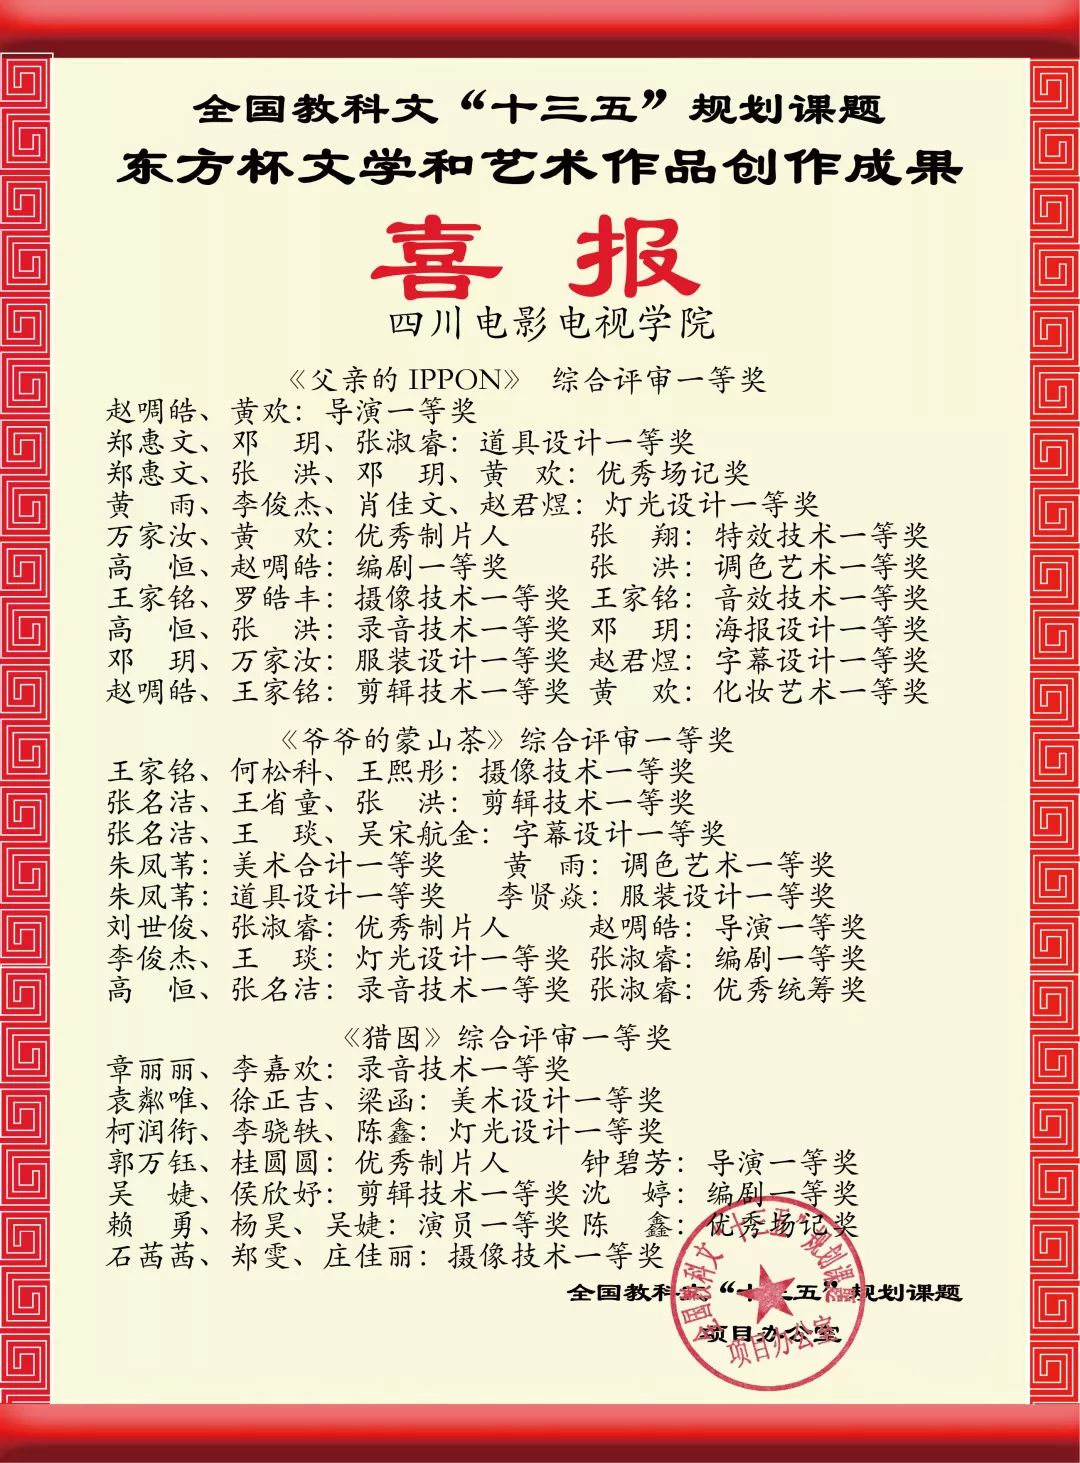 全国教科文“十三五”规划课题
东方杯文学和艺术作品创作成果
喜 报
四川电影电视学院
《父亲的 IPPON》 综合评审一等奖
赵啁皓、黄欢：导演一等奖
郑惠文、邓　玥、张淑睿：道具设计一等奖
郑惠文、张　洪、邓　玥、黄　欢：优秀场记奖
黄　雨、李俊杰、肖佳文、赵君煜：灯光设计一等奖
万家汝、黄　欢：优秀制片人 张　翔：特效技术一等奖
高　恒、赵啁皓：编剧一等奖 张　洪：调色艺术一等奖
王家铭、罗皓丰：摄像技术一等奖 王家铭：音效技术一等奖
高　恒、张　洪：录音技术一等奖 邓　玥：海报设计一等奖
邓　玥、万家汝：服装设计一等奖 赵君煜：字幕设计一等奖
赵啁皓、王家铭：剪辑技术一等奖 黄　欢：化妆艺术一等奖
《爷爷的蒙山茶》综合评审一等奖
王家铭、何松科、王熙彤：摄像技术一等奖
张名洁、王省童、张　洪：剪辑技术一等奖
张名洁、王　琰、吴宋航金：字幕设计一等奖
朱凤苇：美术合计一等奖 黄　雨：调色艺术一等奖
朱凤苇：道具设计一等奖 李贤焱：服装设计一等奖
刘世俊、张淑睿：优秀制片人 赵啁皓：导演一等奖
李俊杰、王　琰：灯光设计一等奖 张淑睿：编剧一等奖
高　恒、张名洁：录音技术一等奖 张淑睿：优秀统筹奖
《猎囡》综合评审一等奖
章丽丽、李嘉欢：录音技术一等奖
袁粼唯、徐正吉、梁函：美术设计一等奖
柯润衔、李骁轶、陈鑫：灯光设计一等奖
郭万钰、桂圆圆：优秀制片人 钟碧芳：导演一等奖
吴　婕、侯欣妤：剪辑技术一等奖 沈　婷：编剧一等奖
赖　勇、杨昊、吴婕：演员一等奖 陈　鑫：优秀场记奖
石茜茜、郑雯、庄佳丽：摄像技术一等奖
全国教科文“十三五”规划课题
项目办公室
全国教科文“十三五”规划课题
项目办公室